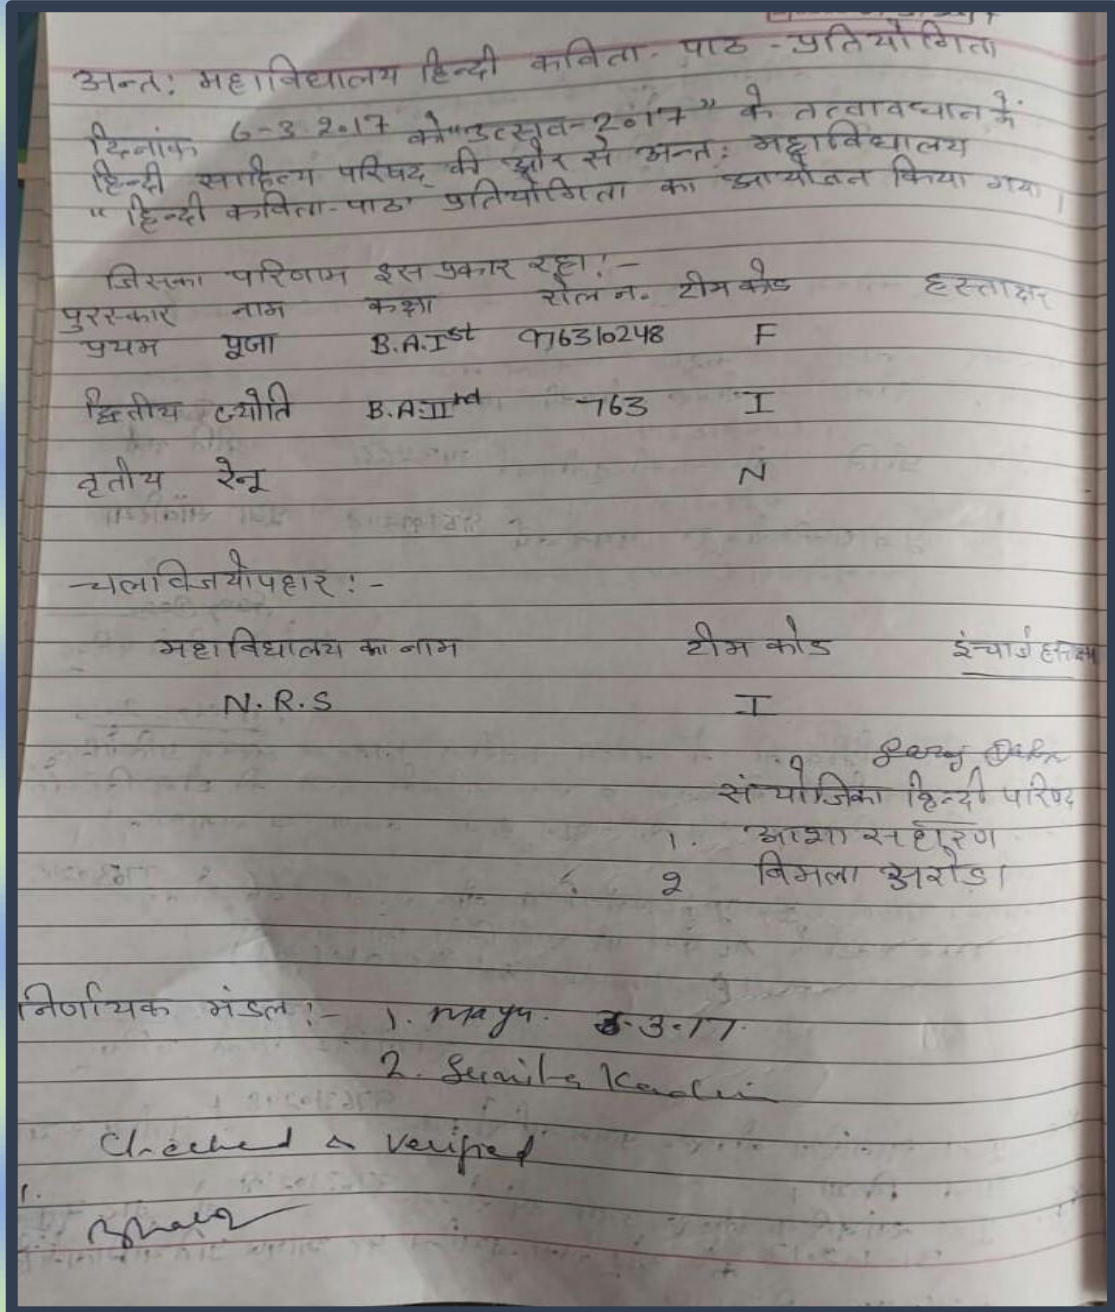 अन्तः महाविद्यालय हिन्दी कविता - पाठ - प्रतियोगिता
दिनांक 6-3.2017 को "उत्सव-2017" के तत्वावधान में
हिन्दी साहित्य परिषद् की ओर से अन्तः महाविद्यालय
"हिन्दी कविता-पाठ प्रतियोगिता का आयोजन किया गया।
जिसका परिणाम इस प्रकार रहा:-
पुरस्कार नाम कक्षा रोल न. टीम कोड हस्ताक्षर
प्रथम पूजा B.A.Ist 976310248 F
द्वितीय ज्योति B.A.IInd 763 I
तृतीय रेनू N
चलविजयोपहार:-
महाविद्यालय का नाम टीम कोड इंचार्ज हस्ताक्षर
N.R.S I
संयोजिका हिन्दी परिषद
1. आशा सहारण
2 बिमला अरोड़ा
निर्णायक मंडल:- 1. 3.17.
2. Sunita
Checked & Verified
1.